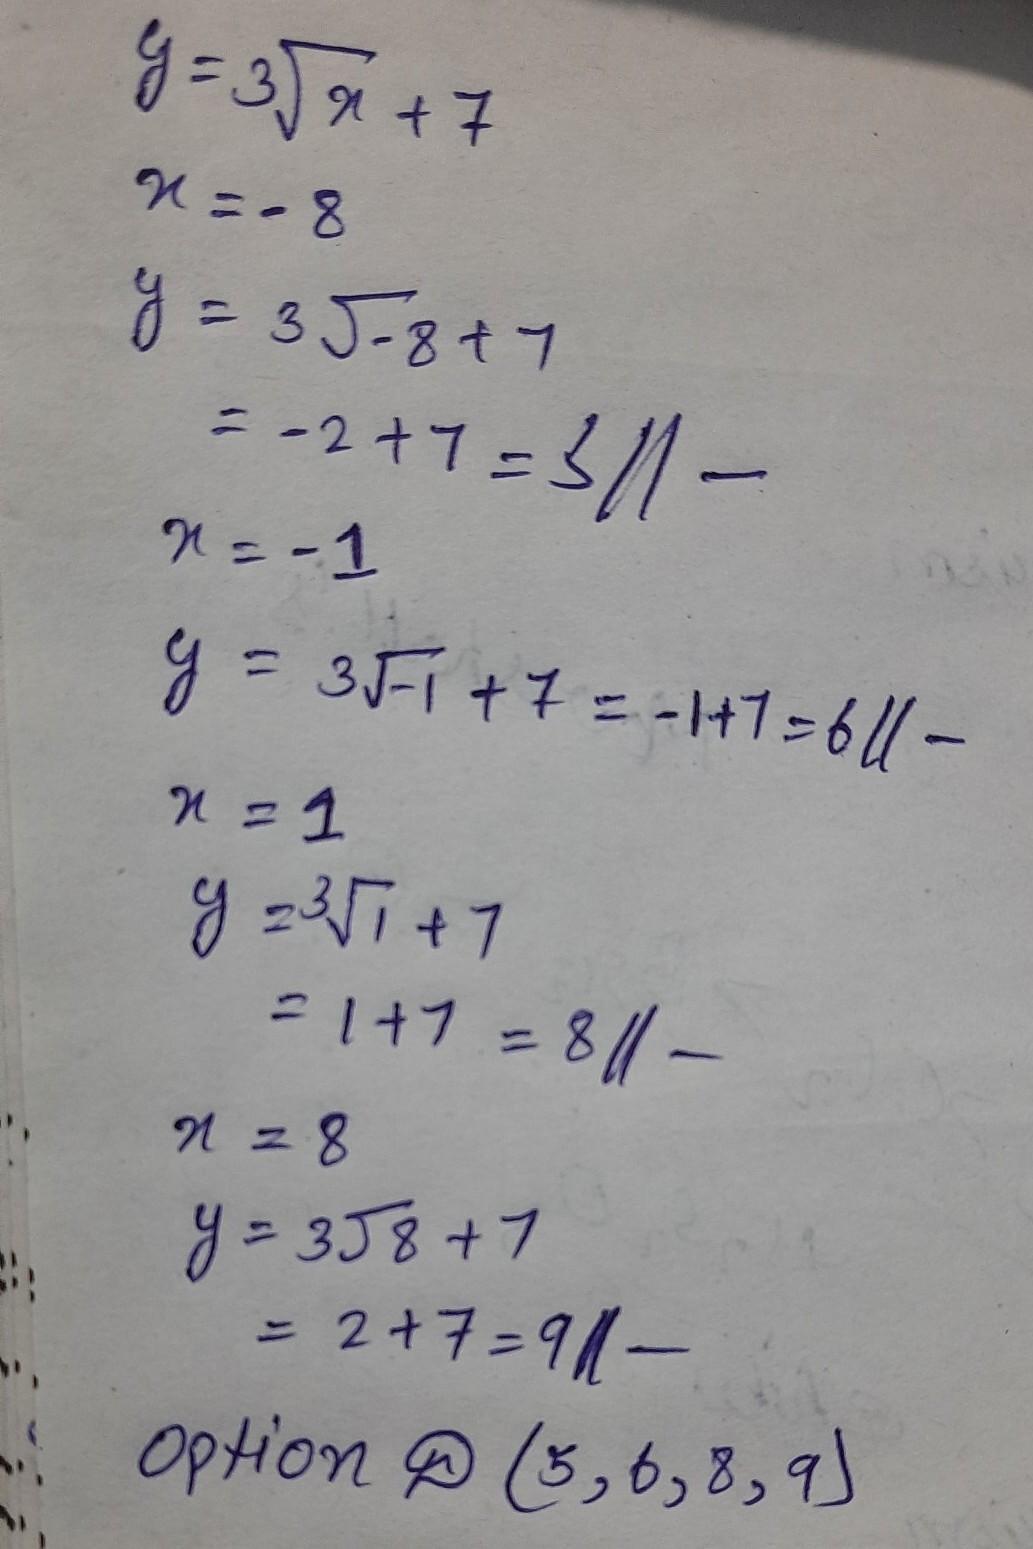 y = 3√x + 7
x = -8
y = 3√-8 + 7
= -2 + 7 = 5// —
x = -1
y = 3√-1 + 7 = -1+7 = 6// —
x = 1
y = ³√1 + 7
= 1+7 = 8// —
x = 8
y = 3√8 + 7
= 2+7 = 9// —
option (5, 6, 8, 9)